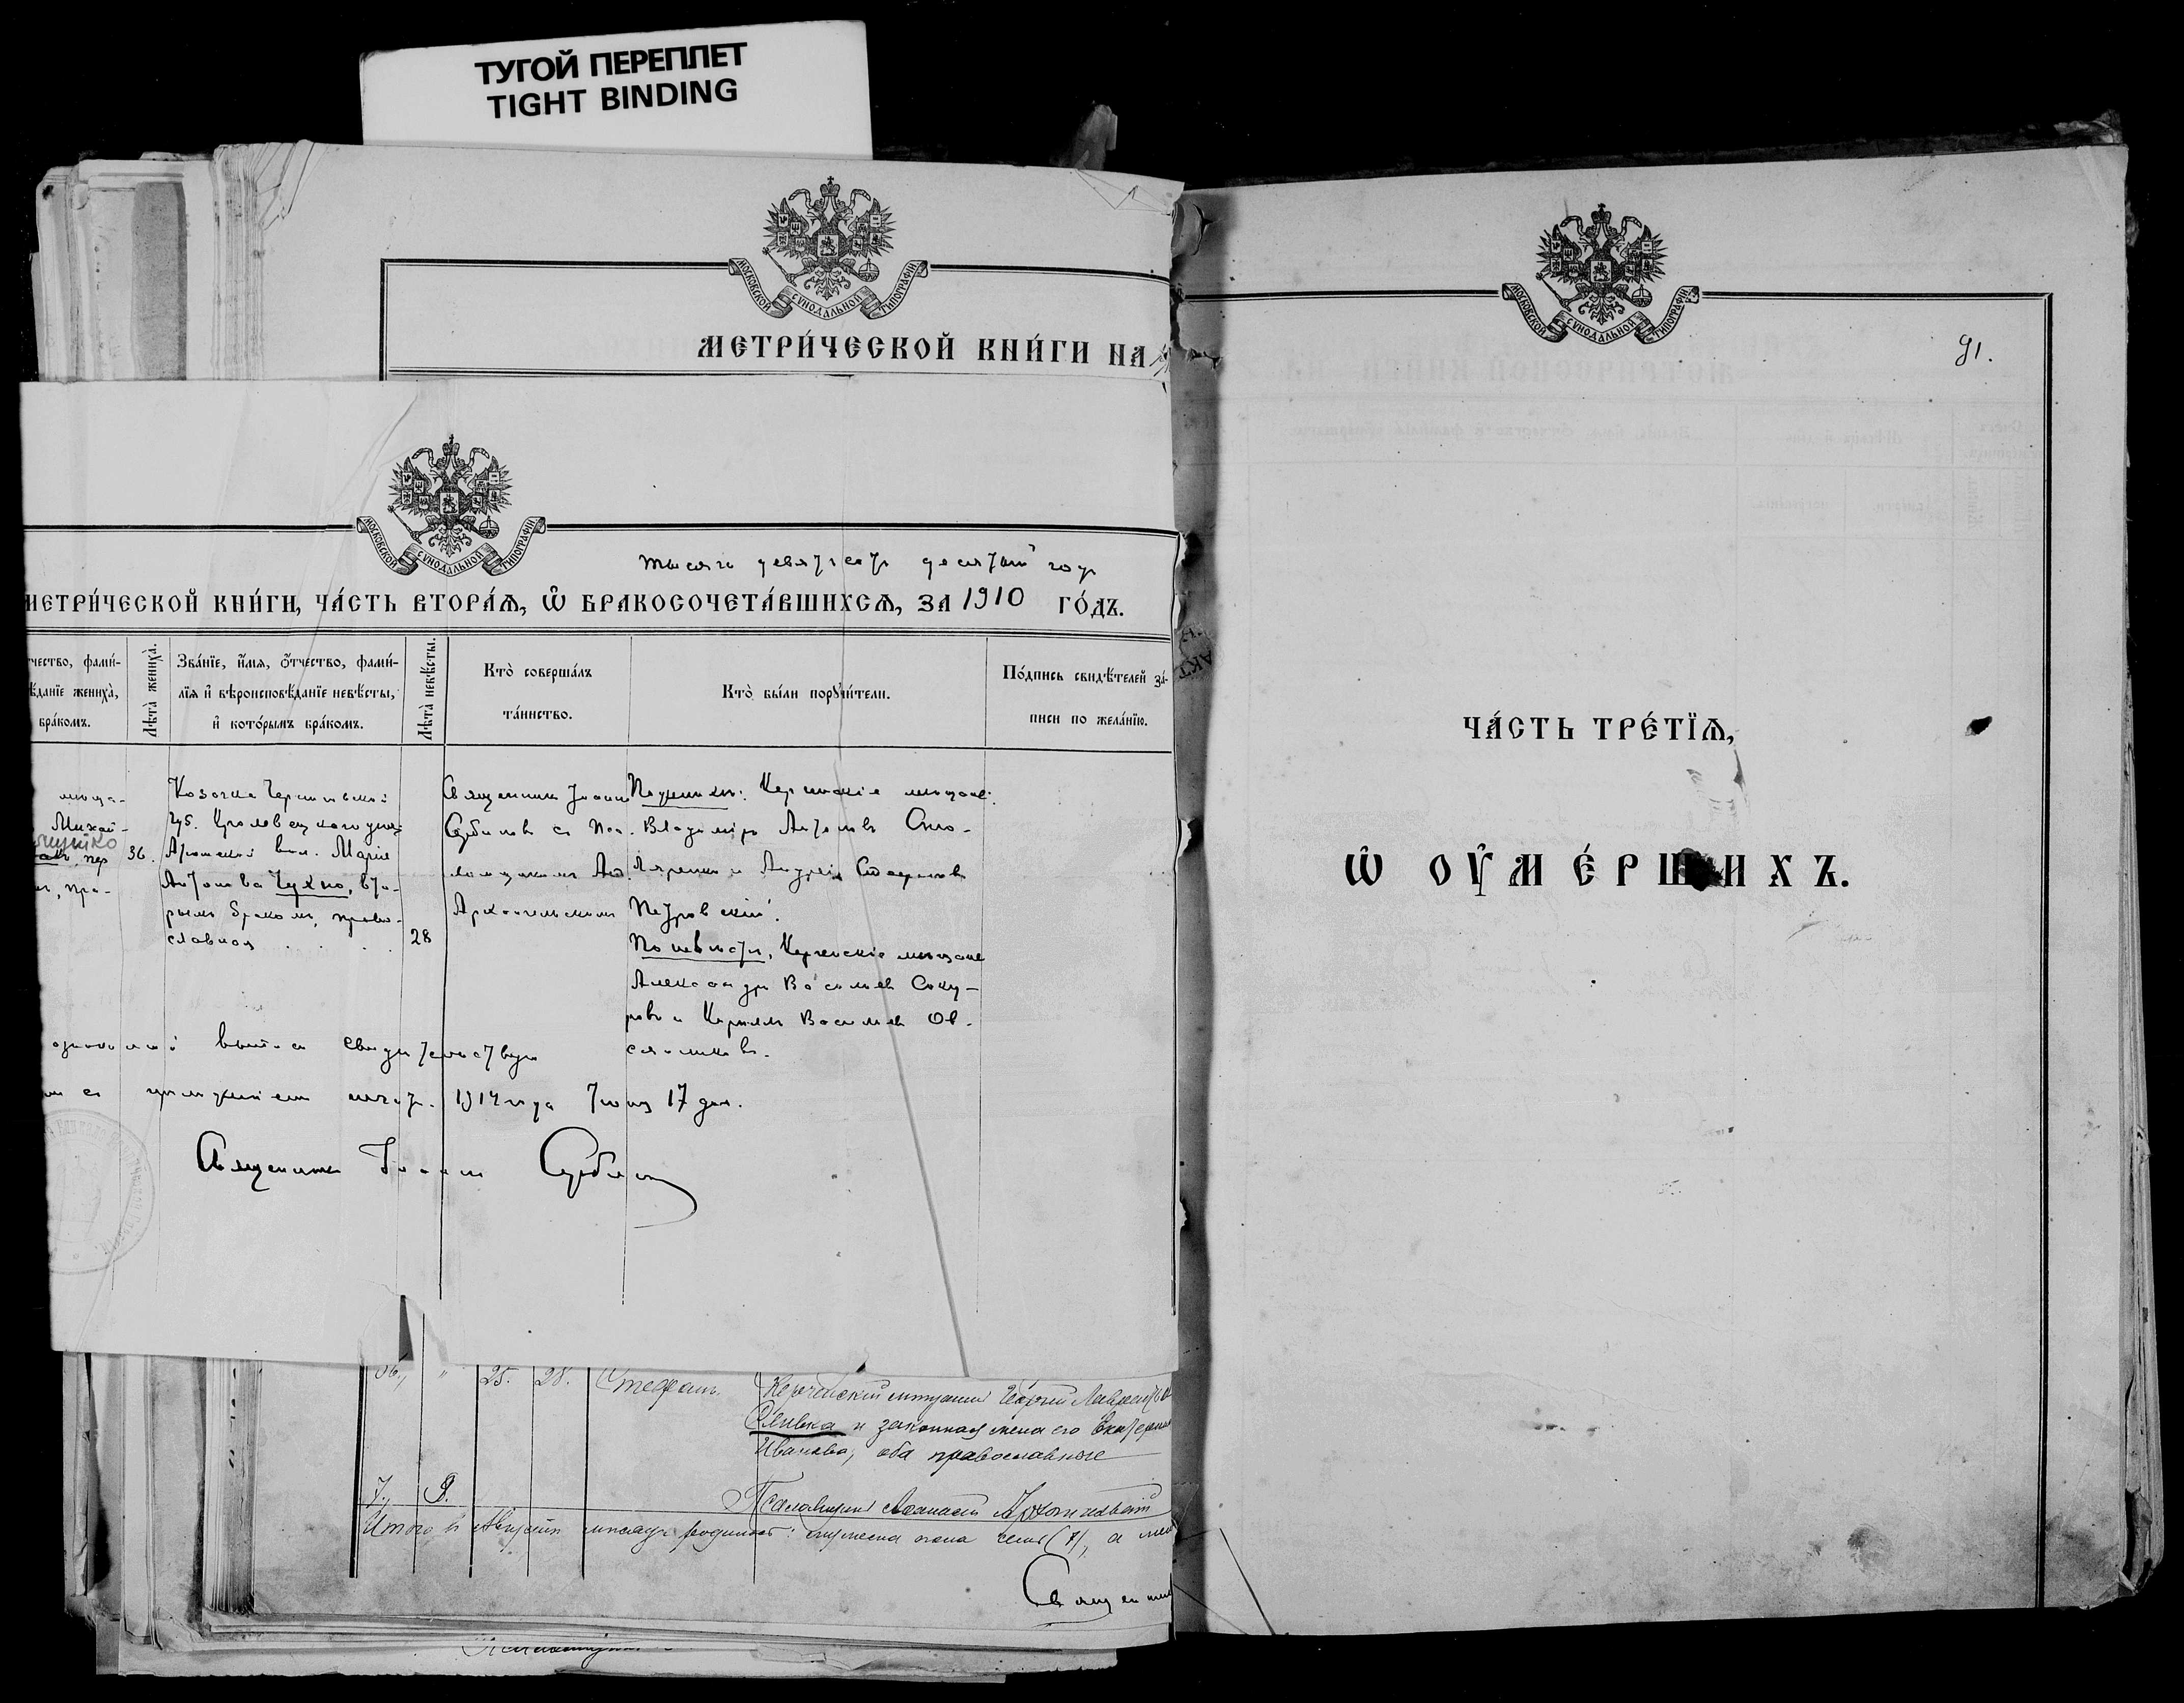 ТУГОЙ ПЕРЕПЛЕТ
TIGHT BINDING
МОСКОВСКОЙ СѴНОДАЛЬНОЙ ТИПОГРАФІИ
МЕТРИ́ЧЕСКОЙ КНИ́ГИ НА
МОСКОВСКОЙ СѴНОДАЛЬНОЙ ТИПОГРАФІИ
тысяча девятьсот десятый год
МЕТРИ́ЧЕСКОЙ КНИ́ГИ, ЧА́СТЬ ВТОРА́Ѧ, Ѽ БРАКОСОЧЕТА́ВШИХСѦ, ЗА 1910 ГО́ДЪ.
чество, фами́-
ѣданїе жениха̀,
бра́комъ.
Лѣта̀ жениха̀.
Зва́нїе, и҆́мѧ, ѻ҆́тчество, фами́-
лїѧ и҆ вѣроисповѣ́данїе невѣ́сты,
и҆ кото́рымъ бра́комъ.
Лѣта̀ невѣ́сты.
Кто̀ соверша́лъ
та́инство.
Кто̀ бы́ли порꙋчи́тели.
По́дпись свидѣ́телей за́-
писи по жела́нїю.
меща-
Михай-
пер
пра-
36.
Козачка Черниговской
губ. Кролевецкаго уез.
вол. Марія
Антонова Чухно, вто-
рым браком, право-
славная
28
Священник Іоанн
Сербинов с Пса-
ломщиком
Архангельским
По жениху: Керченскіе мещане:
Владимір Антонов
и Андрей Стефанов
Петровскій.
По невесте, Керченскіе мещане
Александр Васильев Соку-
ров и Кирилл Васильев Ов-
сянников.
выписи свидетельствую
с приложением печат. 1914 года Іюня 17 дня.
Священник Іоанн Сербинов
25. 28. Стефан. Керченскій мещанин Георгій Лаврентьев
и законная жена его Екатерина
Иванова, оба православные
7. 9.
Псаломщик Архангельскій
Итого в Августе месяце родилось: мужеска пола семь (7), а
Священник
МОСКОВСКОЙ СѴНОДАЛЬНОЙ ТИПОГРАФІИ
91.
ЧА́СТЬ ТРЕ́ТЇѦ,
Ѽ ОУ҆МЕ́РШИХЪ.